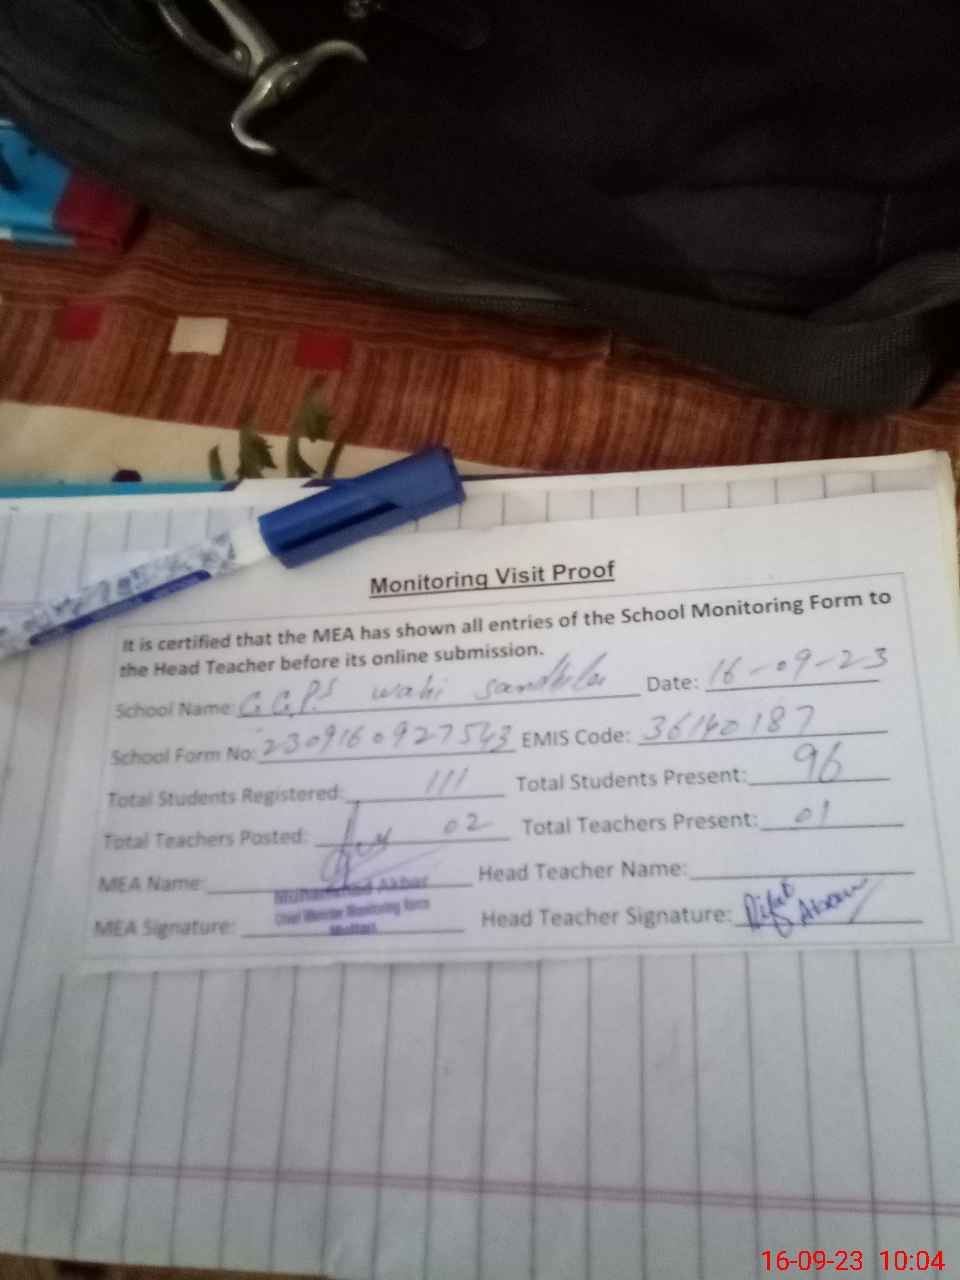 Monitoring Visit Proof
It is certified that the MEA has shown all entries of the School Monitoring Form to
the Head Teacher before its online submission.
School Name: G.G.P.S wahi sandhila Date: 16-09-23
School Form No: 2309160927543 EMIS Code: 36140187
Total Students Registered: 111 Total Students Present: 96
Total Teachers Posted: 02 Total Teachers Present: 01
MEA Name: Head Teacher Name:
Muhammad Akbar
Chief Minister Monitoring Force
Multan
MEA Signature: Head Teacher Signature:
16-09-23 10:04